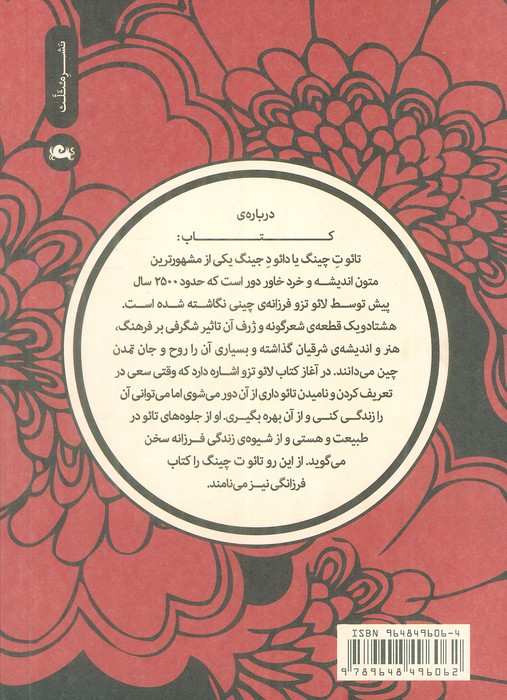 نشر مثلث
درباره‌ی
کتاب:
تائو تِ چینگ یا دائو دِ جینگ یکی از مشهورترین
متون اندیشه و خرد خاور دور است که حدود ۲۵۰۰ سال
پیش توسط لائو تزو فرزانه‌ی چینی نگاشته شده است.
هشتادویک قطعه‌ی شعرگونه و ژرف آن تاثیر شگرفی بر فرهنگ،
هنر و اندیشه‌ی شرقیان گذاشته و بسیاری آن را روح و جان تمدن
چین می‌دانند. در آغاز کتاب لائو تزو اشاره دارد که وقتی سعی در
تعریف کردن و نامیدن تائو داری از آن دور می‌شوی اما می‌توانی آن
را زندگی کنی و از آن بهره بگیری. او از جلوه‌های تائو در
طبیعت و هستی و از شیوه‌ی زندگی فرزانه سخن
می‌گوید. از این رو تائو ت چینگ را کتاب
فرزانگی نیز می‌نامند.
ISBN 964849606-4
9 789648 496062